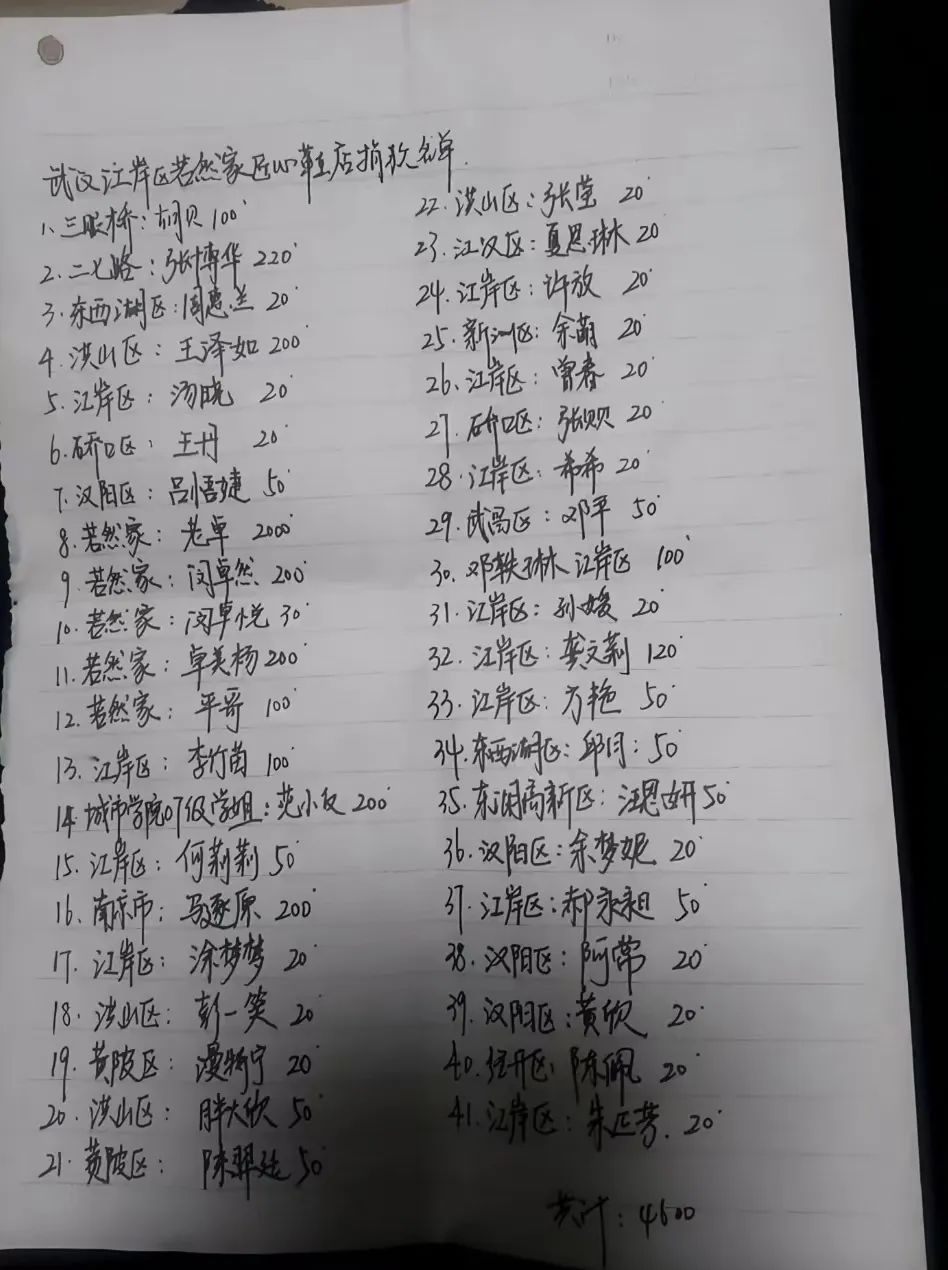 武汉江岸区若然家匠心革主店捐款名单.
1.三眼桥:胡贝 100
2.二七路:张博华 220
3.东西湖区:周惠兰 20
4.洪山区:王泽如 200
5.江岸区:汤晓 20
6.硚口区:王丹 20
7.汉阳区:吕悟婕 50
8.若然家:老卓 2000
9.若然家:闵卓然 200
10.若然家:闵卓悦 30
11.若然家:卓美杨 200
12.若然家:平哥 100
13.江岸区:李竹苗 100
14.城市学院07级学姐:范小 200
15.江岸区:何莉莉 50
16.南京市:马逐原 200
17.江岸区:涂梦梦 20
18.洪山区:彭一笑 20
19.黄陂区:漫特宁 20
20.洪山区:胖大欣 50
21.黄陂区:陈羿廷 50
22.洪山区:张莹 20
23.江汉区:夏思琳 20
24.江岸区:许放 20
25.新洲区:余萌 20
26.江岸区:曾春 20
27.硚口区:张贝 20
28.江岸区:希希 20
29.武昌区:邓平 50
30.邓轶琳 江岸区 100
31.江岸区:孙媛 20
32.江岸区:龚文莉 120
33.江岸区:方艳 50
34.东西湖区:邱月:50
35.东湖高新区:汪思妍 50
36.汉阳区:余梦妮 20
37.江岸区:郝永昶 50
38.汉阳区:阿常 20
39.汉阳区:黄欣 20
40.经开区:陈佩 20
41.江岸区:朱匹芳.20
共计:4600